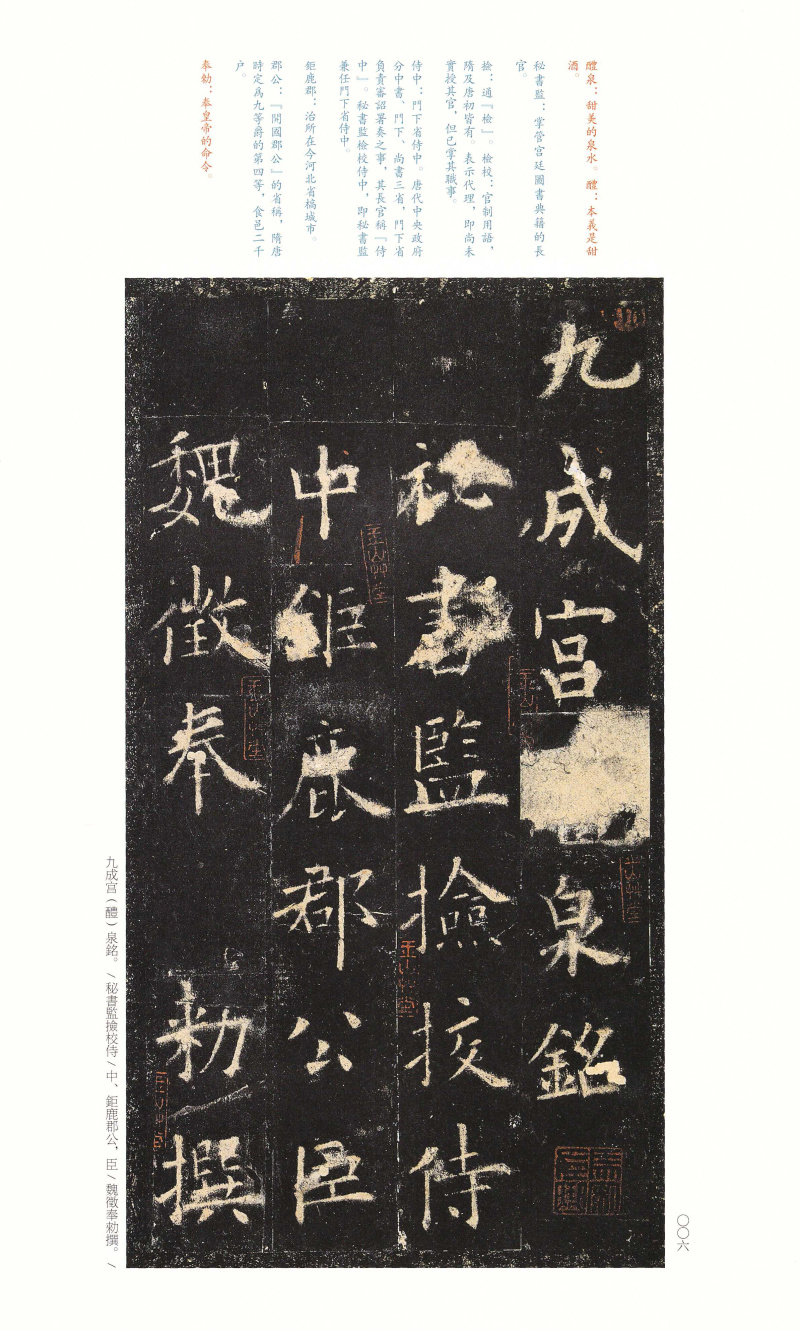 醴泉：甜美的泉水。醴：本義是甜
酒。
秘書監：掌管宫廷圖書典籍的長
官。
撿：通『檢』。檢校：官制用語，
隋及唐初皆有。表示代理，即尚未
實授其官，但已掌其職事。
侍中：門下省侍中。唐代中央政府
分中書、門下、尚書三省，門下省
負責審詔署奏之事，其長官稱『侍
中』。秘書監檢校侍中，即秘書監
兼任門下省侍中。
鉅鹿郡：治所在今河北省槁城市。
郡公：『開國郡公』的省稱，隋唐
時定爲九等爵的第四等，食邑二千
户。
奉勑：奉皇帝的命令。
九成宫泉銘
秘書監撿挍侍
中鉅鹿郡公臣
魏徵奉 勑撰
九成宫（醴）泉銘。/秘書監撿校侍/中、鉅鹿郡公，臣/魏徵奉勑撰。/
〇〇六